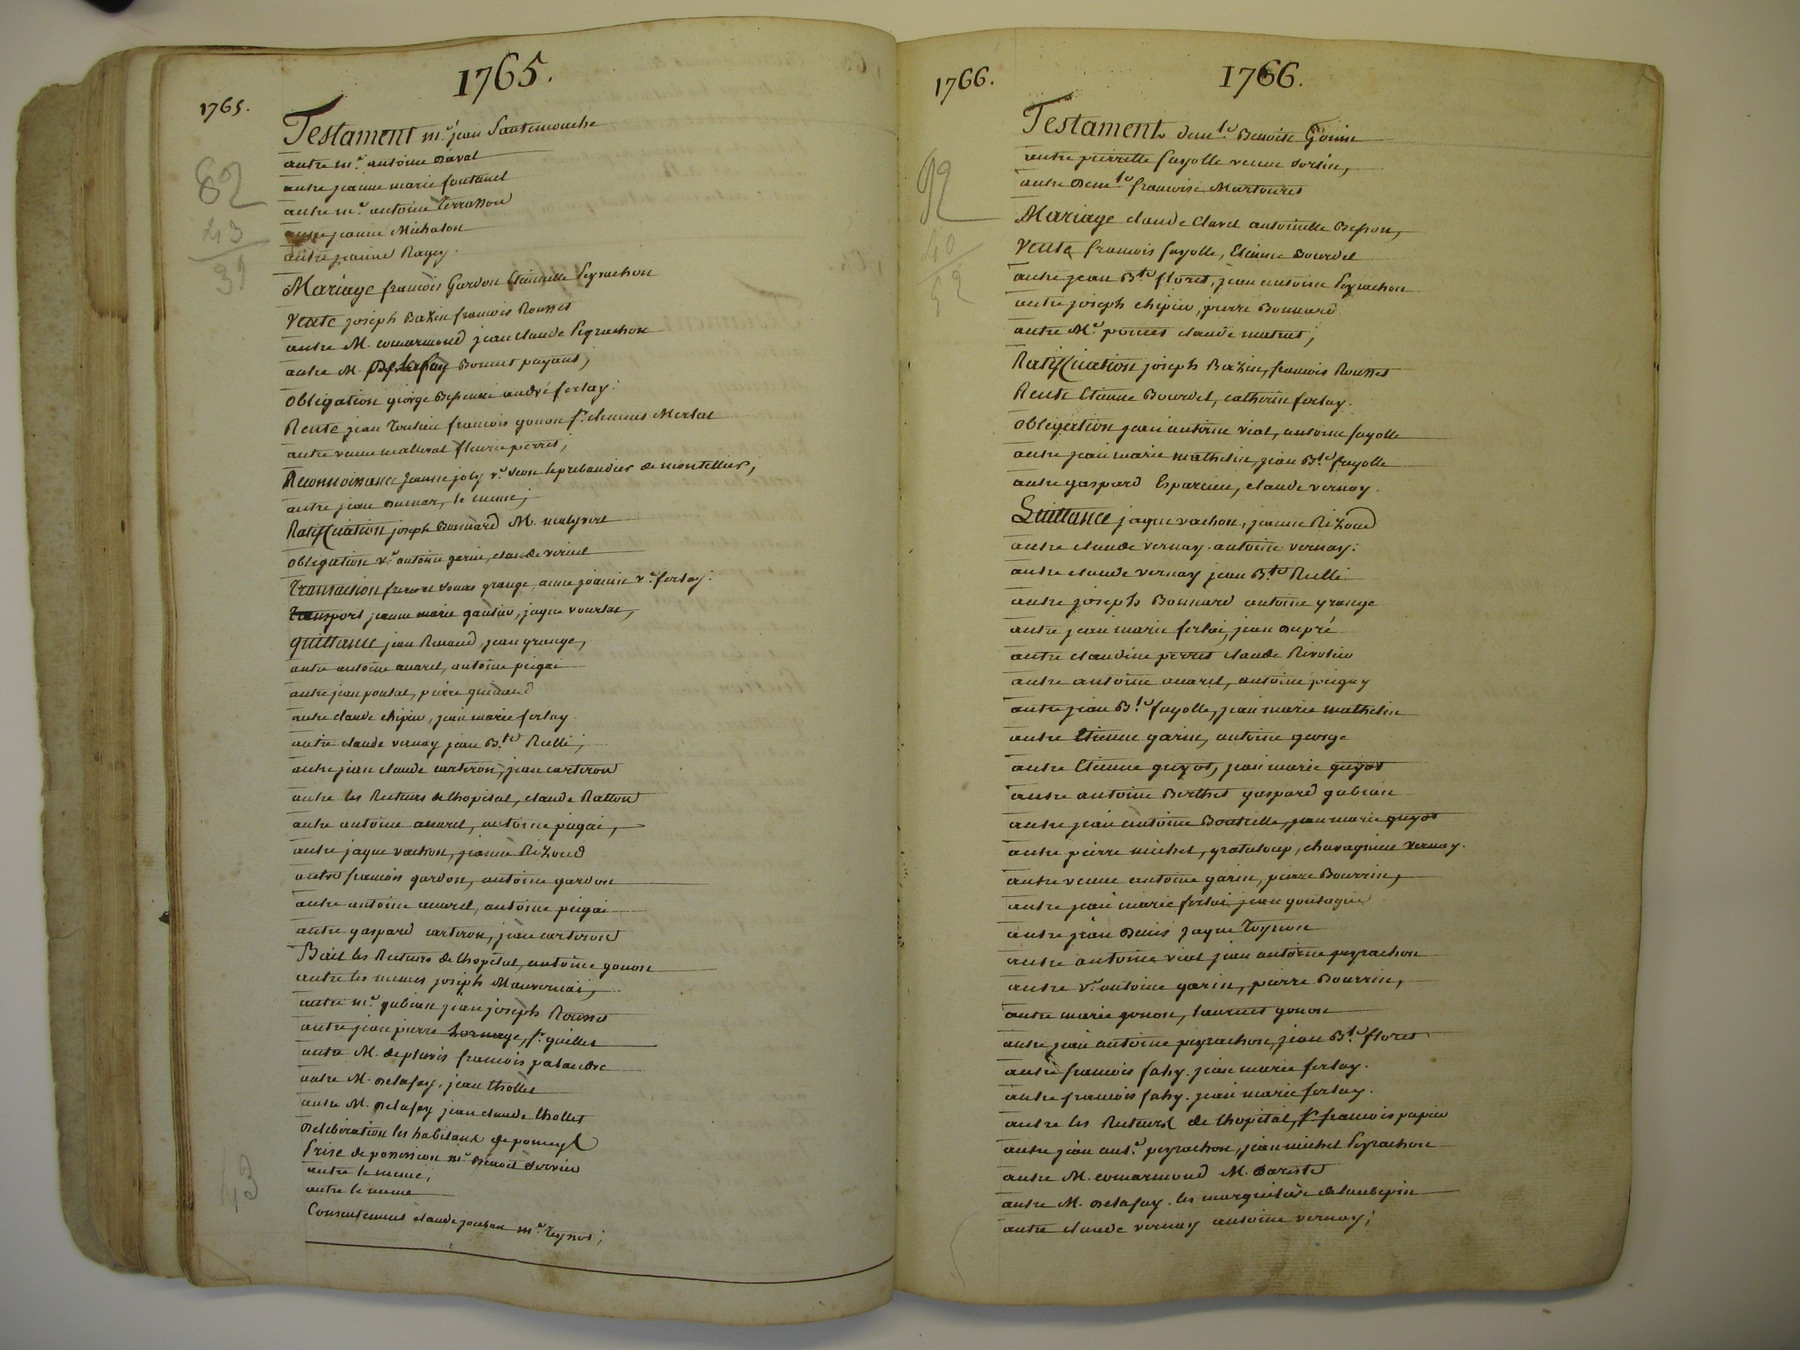 1765.
1765.
Testament m.e jean Sautemouche
autre m.e antoine Daval
autre jeanne marie fontanel
autre m.e antoine terrasson
autre jeanne Michalon
autre jeanne Ragey.
82
43
39
Mariage francois Gardon Etiennette Peyrachon
Vente joseph Bazin francois Rousset
autre M. comarmond jean claude Peyrachon
autre M. Delafay Bonnet payant,
obligation george andré ferlay.
Rente jean francois gonon clement Merlat
autre veuve malaval fleurie perret,
Reconnoissance jeanne joly de montellier,
autre jean le meme,
Ratiffication joseph Bonnard M.
obligation v.e antoine garin, claude
Transaction grange, anne v.e ferlay.
Transport jeanne marie jaque
quittance jean Renaud, jean grange,
autre antoine avarel, antoine peigai
autre jean poulat, pierre guimaud
autre claude chipier, jean marie ferlay.
autre claude vernay jean B.te Rielli,
autre jean claude carteron, jean carteron
autre les Recteurs de lhopital, claude Raton
autre antoine avarel, antoine peigai,
autre jaque vachon, jeanne Rizoud
autre francois gardon, antoine gardon
autre antoine avarel, antoine peigai
autre gaspard carteron, jean carteron
Bail les Recteurs de lhopital, antoine gonon
autre les memes joseph Mauvernai,
autre m.e gubian jean joseph Rousset
autre jean pierre Lornage, s.r guillet
autre M. francois palandre
autre M. Delafay, jean thollet
autre M. Delafay jean claude thollet
Deliberation les habitans de pomeys
Prise de possession m.e Benoit
autre le meme,
autre le meme
Consentement claude m.e
43
1766.
1766.
Testament dem.le Benoite Gonin
autre pierrette fayolle veuve
autre Dem.le francoise
Mariage claude Clavel antoinette Besson,
Vente francois fayolle, Etienne Bourdel
autre jean B.te floret, jean antoine Peyrachon
autre joseph chipier, pierre Bonnard
autre M.e claude
92
40
52
Ratiffication joseph Bazin, francois Rousset
Rente Etienne Bourdel, catherin ferlay.
obligation jean antoine vial, antoine fayolle
autre jean marie mathelin, jean B.te fayolle
autre gaspard Esparcieu, claude vernay.
Quittance jaque vachon, jeanne Rizoud
autre claude vernay. antoine vernay.
autre claude vernay jean B.te Rielli
autre joseph Bonnard antoine grange
autre jean marie ferlai, jean Dupré
autre claudine perret claude
autre antoine avarel, antoine peigay
autre jean B.te fayolle, jean marie mathelin
autre Etienne garin, antoine george
autre Etienne guyot, jean marie guyot
autre antoine Berthet gaspard gubian
autre jean antoine Bouteille, jean marie guyot
autre pierre michel, grataloup, chavagnieu vernay.
autre veuve antoine garin, pierre Bourrin,
autre jean marie ferlai, jean
autre jean Denis jaque
autre antoine vial jean antoine peyrachon
autre v.e antoine garin, pierre Bourrin,
autre marie gonon, laurent gonon
autre jean antoine peyrachon, jean B.te floret
autre francois fahy. jean marie ferlay.
autre francois fahy. jean marie ferlay.
autre les Recteurs de lhopital, s.r francois papin
autre jean ant.e peyrachon, jean michel Peyrachon
autre M. comarmond M. Dareste
autre M. Delafay. les marguiliers de laubepin
autre claude vernay antoine vernay,